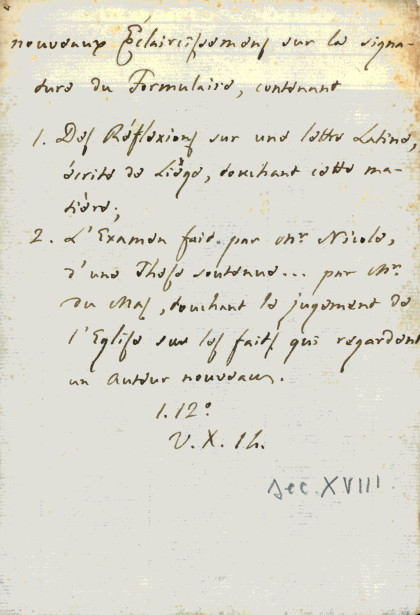 nouveaux Éclaircissemens sur la signa-
ture du Formulaire, contenant
1. Des Réfléxions sur une lettre Latine,
écrite de Liége, touchant cette ma-
tière;
2. L'Examen fait par Mr. Nicole,
d'une Thèse soutenue... par Mr.
du Mas, touchant le jugement de
l'Eglise sur les faits qui regardent
un Auteur nouveau.
1.12°
V.X.14.
sec. XVIII